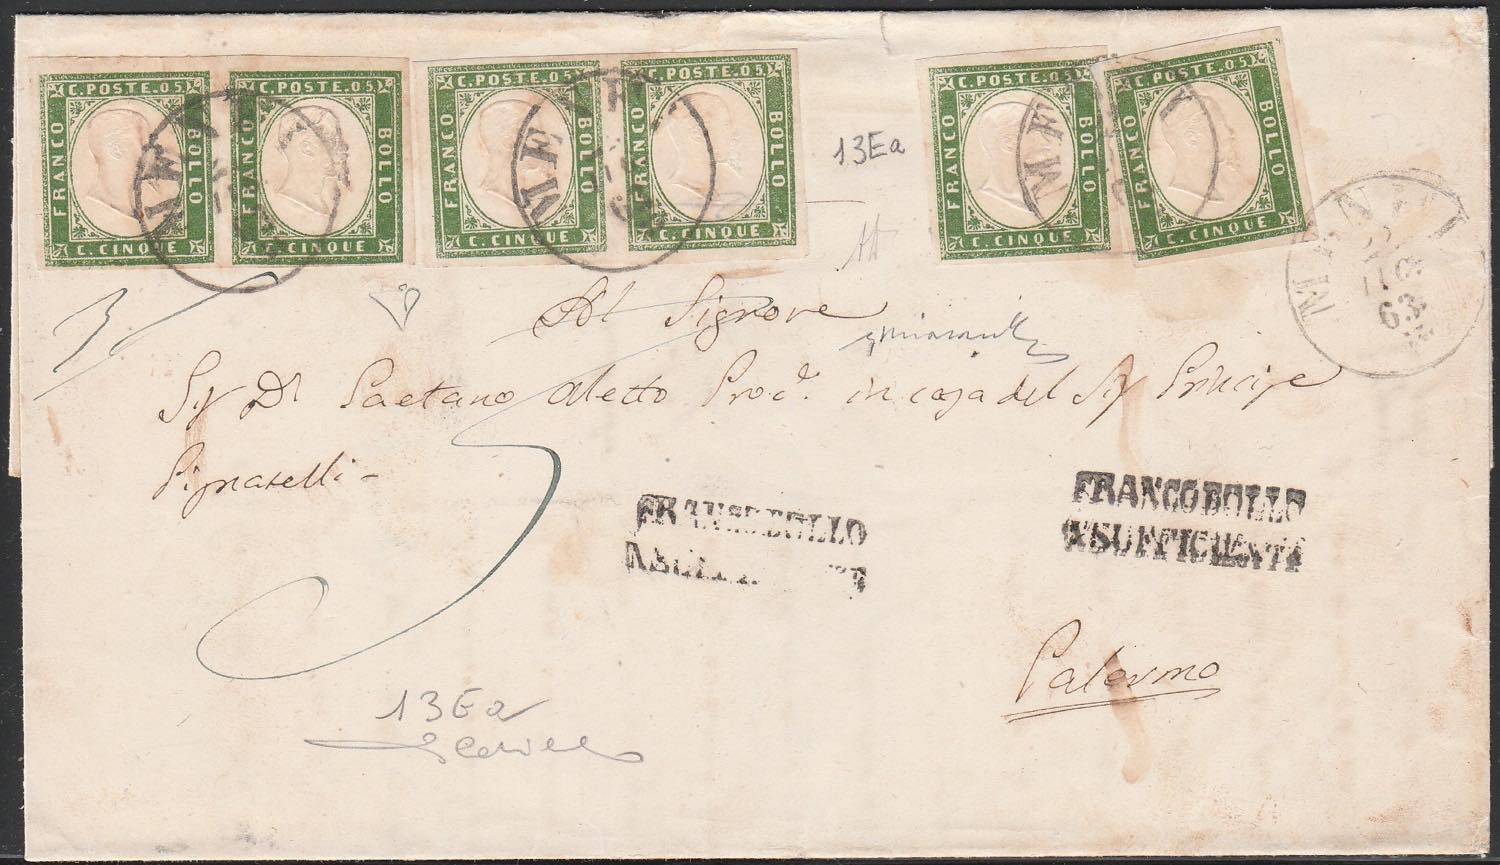 C. POSTE. 05 C. POSTE. 05 C. POSTE. 05 C. POSTE. 05 C. POSTE. 05 C. POSTE. 05
FRANCO BOLLO FRANCO BOLLO FRANCO BOLLO FRANCO BOLLO FRANCO BOLLO FRANCO BOLLO
C. CINQUE C. CINQUE C. CINQUE C. CINQUE C. CINQUE C. CINQUE
13Ea
63
Al Signore
Gaetano Proc. in casa del Principe
Pignatelli
FRANCOBOLLO
INSUFFICIENTE
FRANCOBOLLO
INSUFFICIENTE
5
Palermo
13Ea